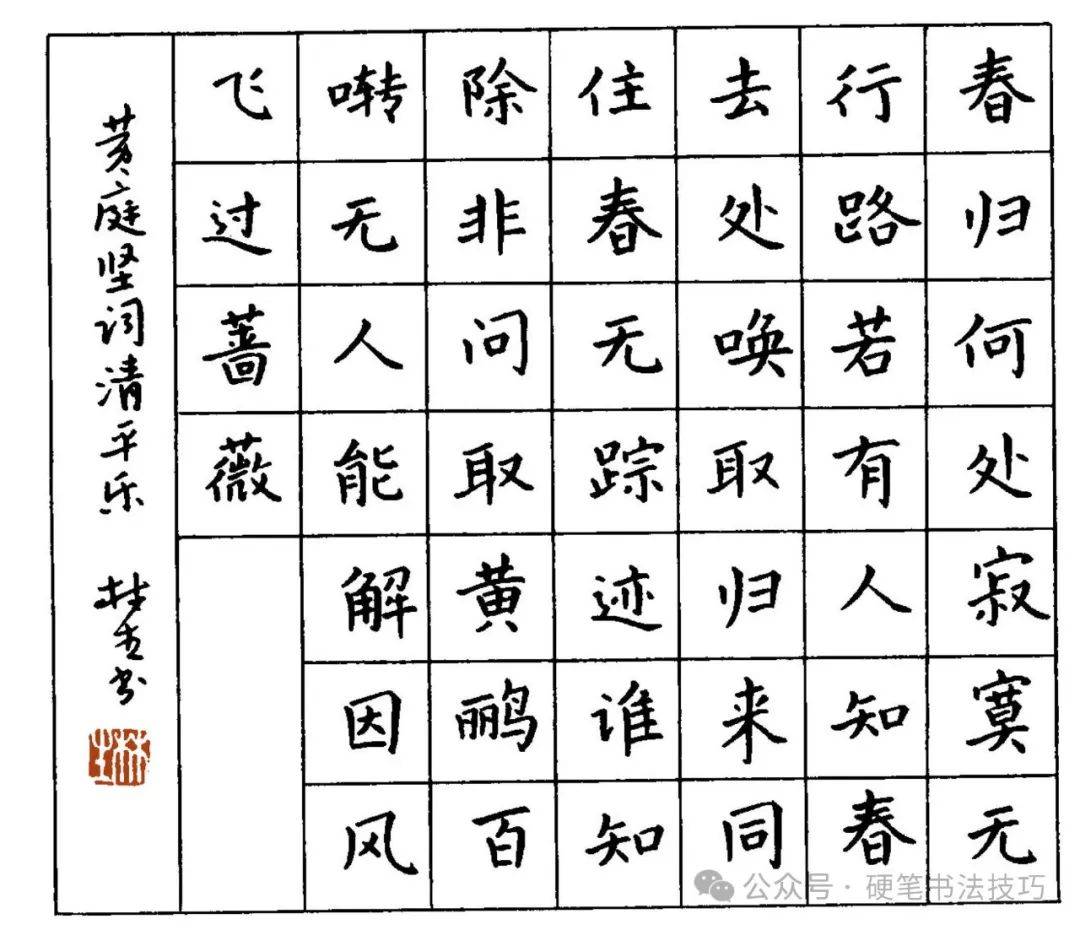 春归何处寂寞无
行路若有人知春
去处唤取归来同
住春无踪迹谁知
除非问取黄鹂百
啭无人能解因风
飞过蔷薇
黄庭坚词清平乐
书
公众号·硬笔书法技巧